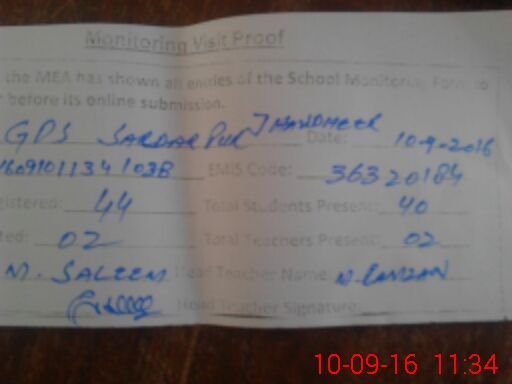 Monitoring Visit Proof
the MEA has shown all entries of the School Monitoring Form to
before its online submission.
GPS SARDAR PUR JHANDHEER Date: 10-9-2016
EMIS Code: 36320184
istered: 44 Total Students Present: 40
ted: 02 Total Teachers Present: 02
M. SALEEM Head Teacher Name: M. RAMZAN
Head Teacher Signature:
10-09-16 11:34